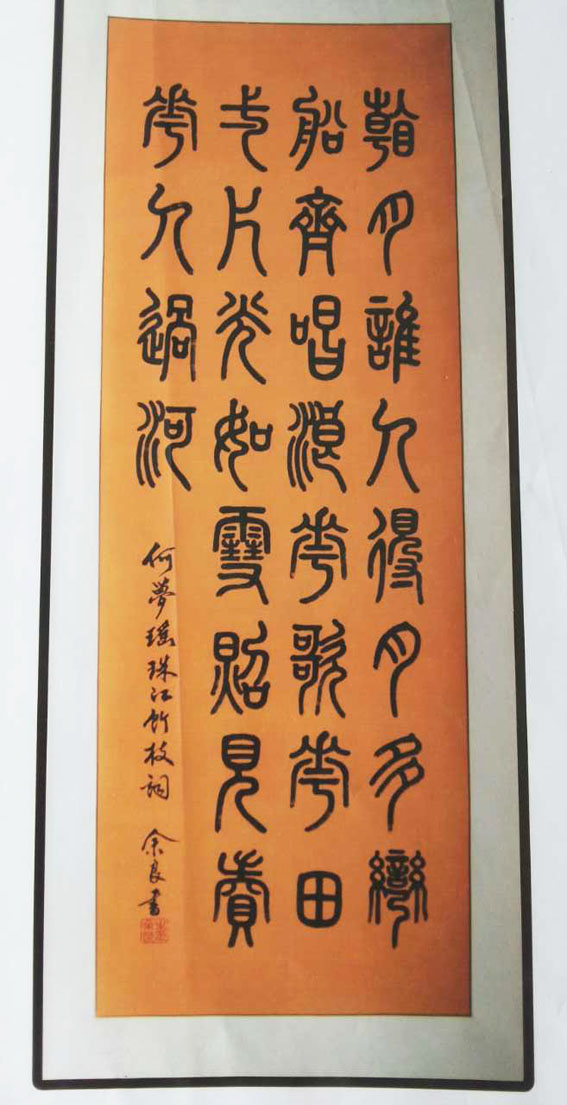 看月誰人得月多彎
船齊唱浪花歌花田
弌片光如雪照見賣
花人過河
何夢瑶珠江竹枝詞 余良書